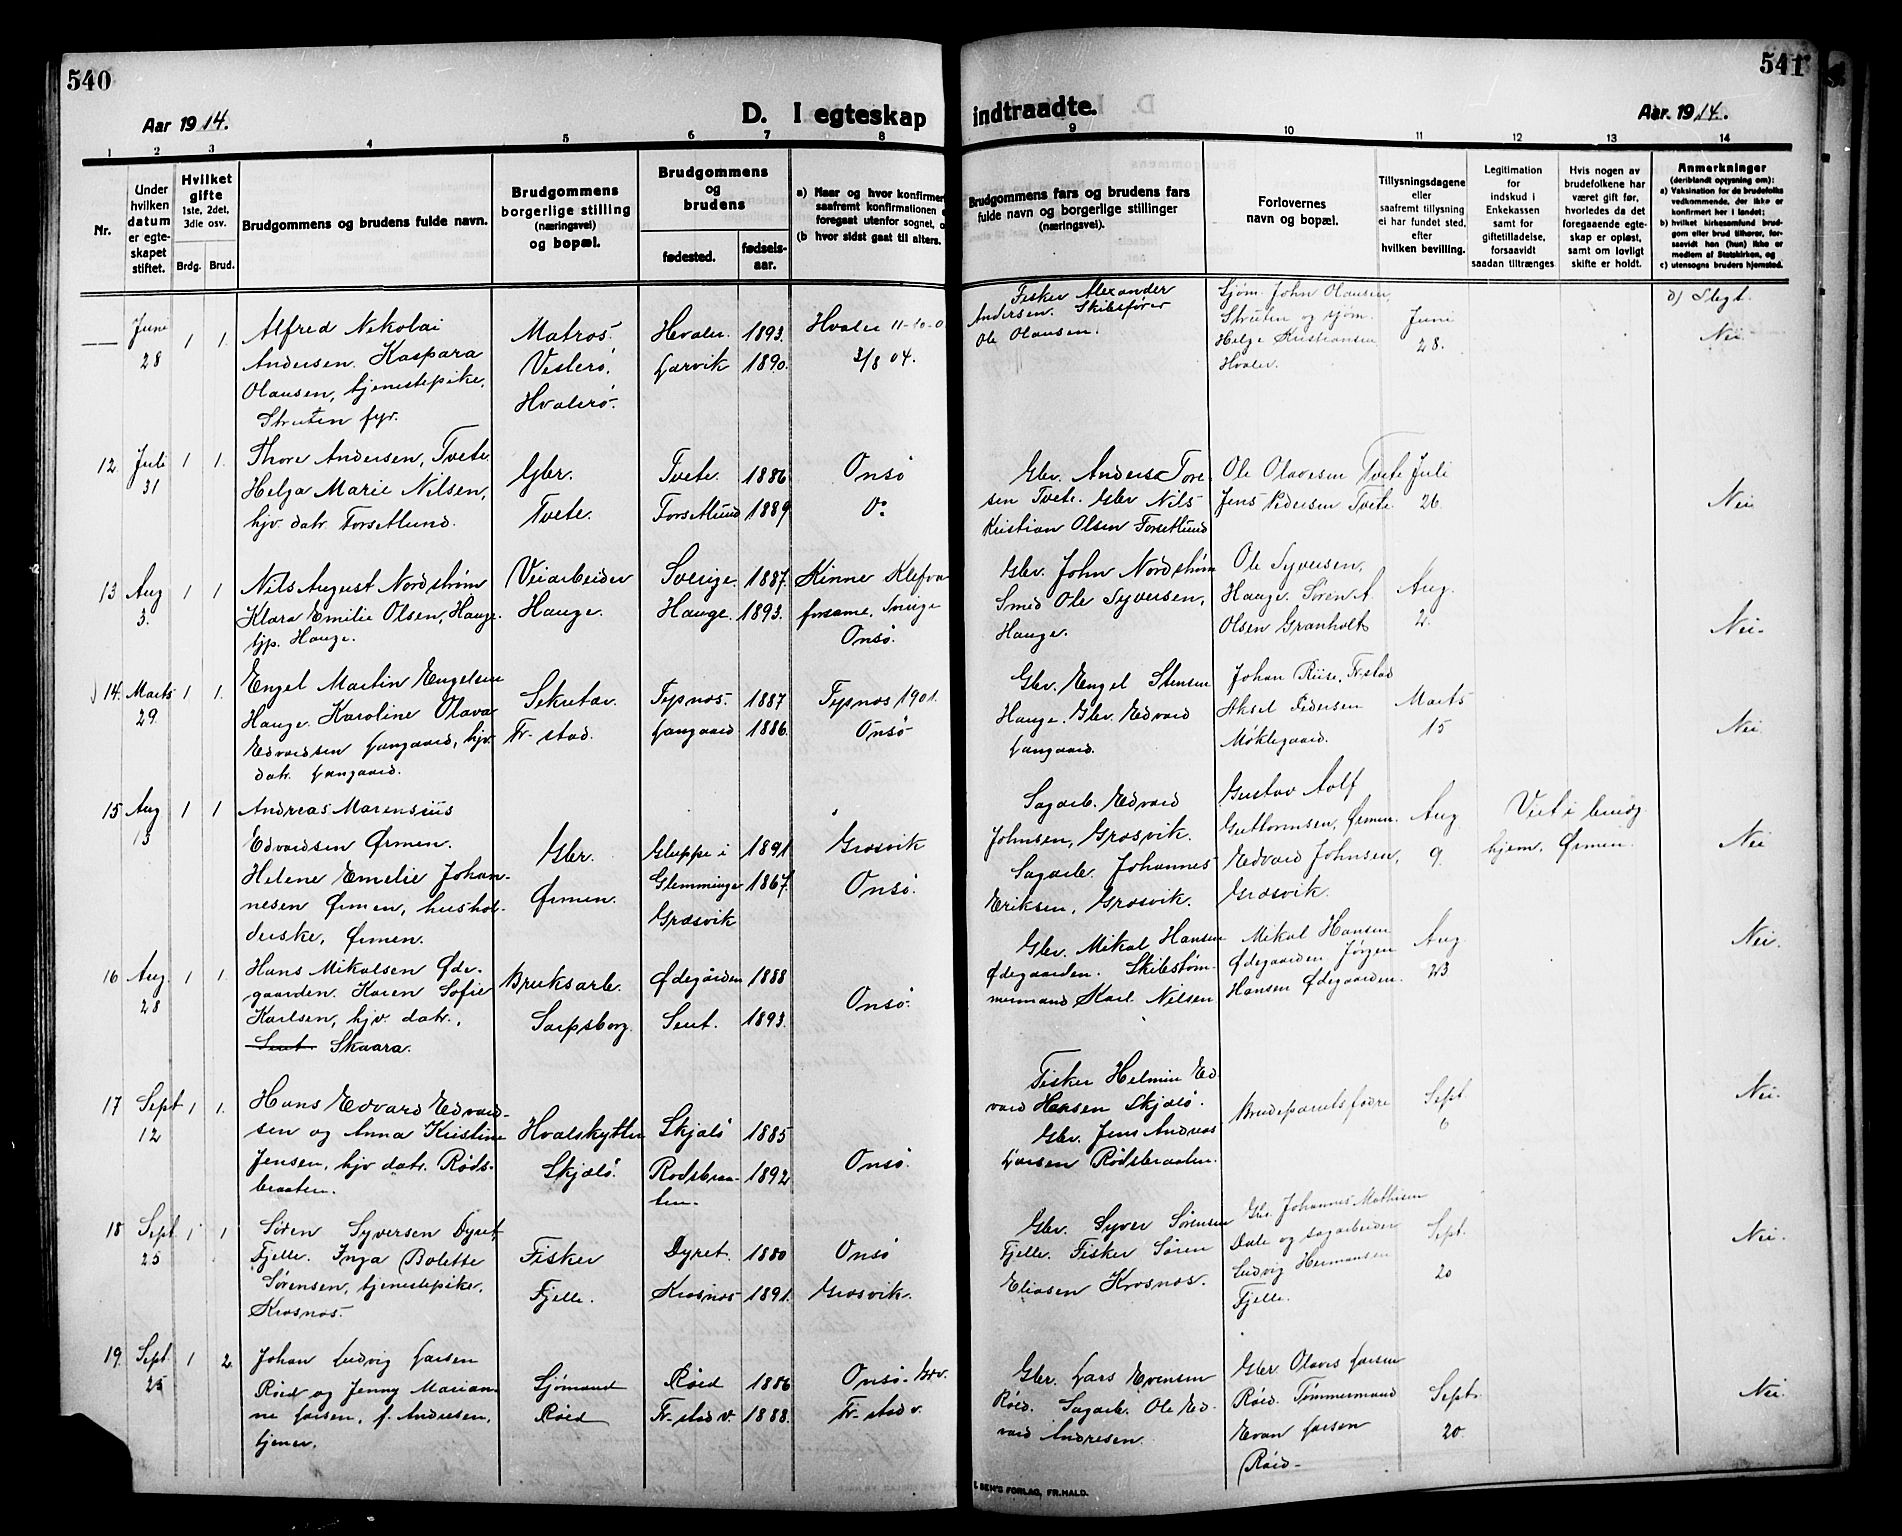 540
541
Aar 1914.
D. I egteskap indtraadte.
Aar. 1914.
1 2 3 4 5 6 7 8 9 10 11 12 13 14
Nr.
Under hvilken datum er egteskapet stiftet.
Hvilket gifte 1ste, 2det, 3dle osv.
Brdg. Brud.
Brudgommens og brudens fulde navn.
Brudgommens borgerlige stilling (næringsvei) og bopæl.
Brudgommens og brudens
fødested.
fødselsaar.
a) Naar og hvor konfirmer
saafremt konfirmationen
foregaat utenfor sognet, o
(b hvor sidst gaat til alters.
Brudgommens fars og brudens fars
fulde navn og borgerlige stillinger
(næringsvei).
Forlovernes
navn og bopæl.
Tillysningsdagene
eller
saafremt tillysning
ei har fundet sted,
efter
hvilken bevilling.
Legitimation
for
indskud i
Enkekassen
samt for
giftetilladelse,
forsaavidt
saadan tiltrænges
Hvis nogen av
brudefolkene har
været gift før,
hvorledes da det
foregaaende egte-
skap er opløst,
samt om lovligt
skifte er holdt.
Anmerkninger
(deriblandt oplysning om):
a) Vaksination for de brudefolks
vedkommende, der ikke er
konfirmert her i landet;
b) hvilket kirkesamfund brud-
gom eller brud tilhører, for-
saavidt han (hun) ikke er
medlem af Statskirken, og
c) utensogns bruders hjemsted.
— June 28 1 1.
Alfred Nikolai
Andersen. Kaspara
Olausen, tjenestepike,
Struten fyr.
Matros
Vesterø,
Hvalerø.
Hvaler. 1893.
Larvik 1890.
Hvaler 11-10-0
3/8 04.
Fisker Alexander
Andersen. Skibsfører
Ole Olausen.
Sjøm. John Olausen,
Struten og sjøm.
Helge Kristiansen
Hvaler.
Juni
28.
Slegt.
Nei
12 Juli 31 1 1.
Thore Andersen, Tvete.
Helga Marie Nilsen,
hjv. datr. Torsetlund.
Gbr.
Tvete.
Tvete. 1886
Torsetlund 1889
Onsø
Do
Gbr. Anders Tore-
sen Tvete. Gbr Nils
Kristian Olsen Torsetlund
Ole Olavesen Tvete
Jens Pedersen Tvete
Juli
26.
Nei
13 Aug 3. 1 1
Nils August Nordstrøm
Klara Emilie Olsen, Hauge.
tjp. Hauge.
Veiarbeider
Hauge.
Sverige. 1887.
Hauge. 1893.
Kinne Klefva
forsaml.
Onsø.
Gbr. John Nordstrøm
Smed Ole Syversen,
Hauge.
Ole Syversen,
Hauge. Søren A.
Olsen Granholt
Aug.
2.
Nei.
14. Marts 29. 1 1.
Engel Martin Engelsen
Hauge. Karoline Olava
Edvardsen Langaard, hjv.
datr. Langaard.
Sekretær.
Fr-stad.
Tegnøs. 1887
Langaard 1886.
Tegnøs 1901.
Onsø
Gbr. Engel Stensen
Hauge. Gbr. Edvard
Langaard.
Johan Riise, Fr.stad
Aksel Pedersen
Møklegaard.
Marts
15
Nei
15 Aug 13 1 1
Andreas Marensius
Edvardsen Ørmen.
Helene Emelie Johan-
nesen Ørmen, hushol-
derske, Ørmen.
Gbr.
Ørmen.
Gluppe i 1891
Glemminge 1867.
Græsvik
Græsvik
Onsø.
Sagarb. Edvard
Johnsen, Græsvik.
Sagarb. Johannes
Eriksen, Græsvik.
Gustav Adolf
Guttormsen, Ørmen.
Edvard Johnsen,
Græsvik.
Aug
9.
Viet i brudg
hjem, Ørmen.
Nei
16 Aug. 28 1 1.
Hans Mikalsen Øde-
gaarden. Karen Sofie
Karlsen, hjv. datr.,
Skaara.
Bruksarb.
Sarpsborg.
Ødegården 1888
1893.
Onsø.
Gbr. Mikal Hansen
Ødegaarden. Skibstøm-
mermand Karl Nilsen
Mikal Hansen
Ødegaarden. Jørgen
Hansen Ødegaarden.
Aug
23
Nei.
17 Sept 12 1 1.
Hans Edvard Edvard-
sen og Anna Kristine
Jensen, hjv datr. Røds-
braaten.
Hvalskytter
Skjælø.
Skjælø 1885
Rødsbraa- 1892
ten.
Onsø.
Fisker Helmin Ed
vard Hansen Skjælø.
Gbr. Jens Andreas
Larsen Rødsbraaten.
Brudeparretsfædre
Sept.
6
Nei.
18 Sept 25 1 1
Søren Syversen Dyret
Fjelle. Inga Bolette
Sørensen, tjenestepike,
Krosnæs.
Fisker
Fjelle.
Dyret. 1880
Krosnæs 1891.
Onsø
Græsvik.
Gbr. Syver Sørensen
Fjelle. Fisker Søren
Eliasen Krosnæs.
Gbr. Johannes Mathisen
Dale og sagarbeider
Ludvig Hermansen
Fjelle.
Sept.
20
Nei.
19. Sept. 25 1 2
Johan Ludvig Larsen
Røed og Jenny Marian-
ne Larsen, f. Andresen,
tjener.
Sjømand
Røed
Røed 1886
Fr-stad v. 1888.
Onsø.
Fr-stad v.
Gbr. Lars Evensen
Røed. Sagarb. Ole Ed-
vard Andresen.
Gbr. Olaves Larsen
Røed. Tømmermand
Evan Larsen
Røed.
Sept.
20.
Nei.
SEN'S FORLAG, FR.HALD.